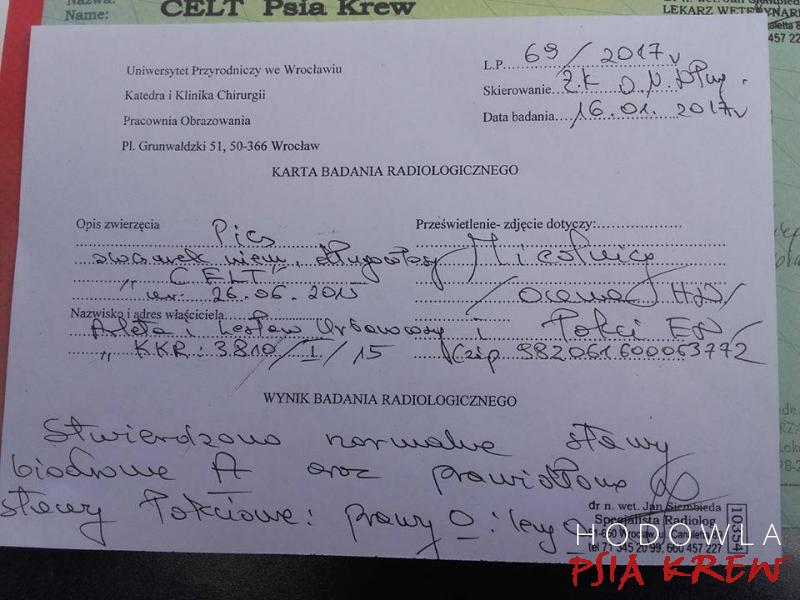 Nazwa:
Name:
CELT Psia Krew
dr n. wet. Jan Siembieda
LEKARZ WETERYNARII
Uniwersytet Przyrodniczy we Wrocławiu
Katedra i Klinika Chirurgii
Pracownia Obrazowania
Pl. Grunwaldzki 51, 50-366 Wrocław
L.P. 69/2017r
Skierowanie Z.K
Data badania 16.01.2017r
KARTA BADANIA RADIOLOGICZNEGO
Opis zwierzęcia Pies
owczarek niem. długowłosy
"CELT"
ur. 26.06.2015
Nazwisko i adres właściciela
Arleta i Lesław
KKR: 3810/I/15
Prześwietlenie- zdjęcie dotyczy:
Miednica
/ocena HD/
i Łokci ED/
Czip 982061600063772
WYNIK BADANIA RADIOLOGICZNEGO
Stwierdzono normalne stawy
biodrowe A oraz prawidłowe
stawy łokciowe: prawy 0 : lewy 0
dr n. wet. Jan Siembieda
Specjalista Radiolog
tel 71 345 20 99, 660 457 227
10354
HODOWLA
PSIA KREW